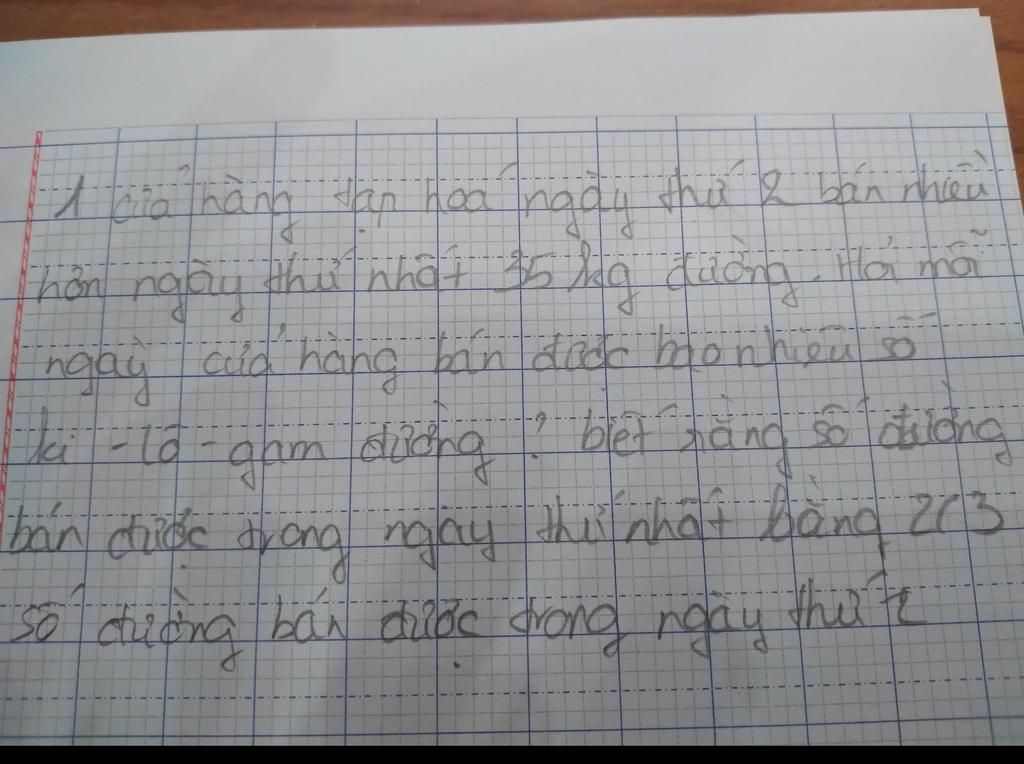 1 cửa hàng tạp hoá ngày thứ 2 bán nhiều
hơn ngày thứ nhất 35 kg đường. Hỏi mỗi
ngày cửa hàng bán được bao nhiêu số
ki-lô-gam đường? biết rằng số đường
bán được trong ngày thứ nhất bằng 2/3
số đường bán được trong ngày thứ 2